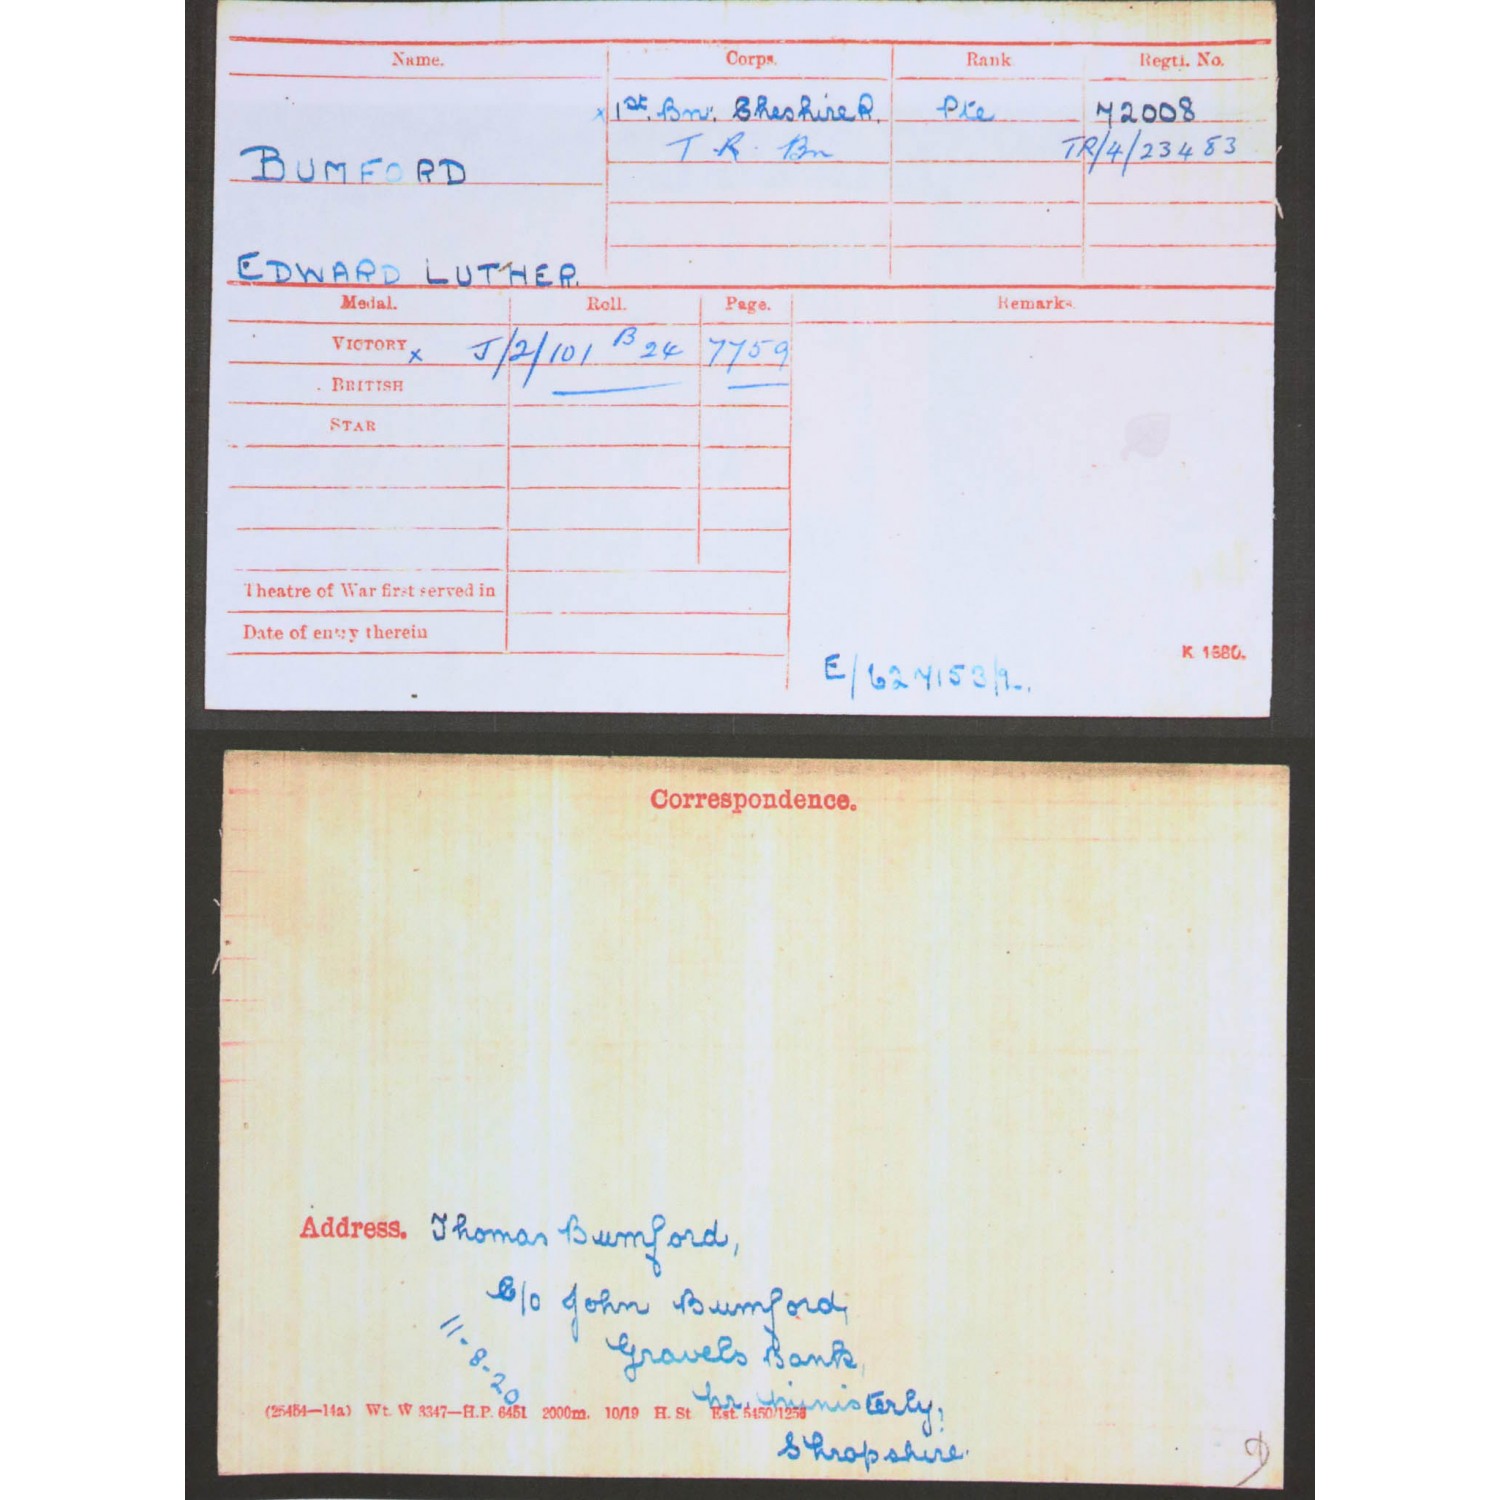 Name. Corps. Rank Regtl. No.
x 1st. Bn. Cheshire R. Pte 72008
T. R. Bn TR/4/23483
BUMFORD
EDWARD LUTHER.
Medal. Roll. Page. Remarks.
VICTORY x J/2/101 B 24 7759
BRITISH
STAR
Theatre of War first served in
Date of entry therein
K. 1380.
E/627153/1.
Correspondence.
Address. Thomas Bumford,
C/o John Bumford,
Gravels Bank,
11-8-20
nr. Ministerly,
(25454—14a) Wt. W 3347—H.P. 6451 2000m. 10/19 H. St Est. 5450/1256
Shropshire.